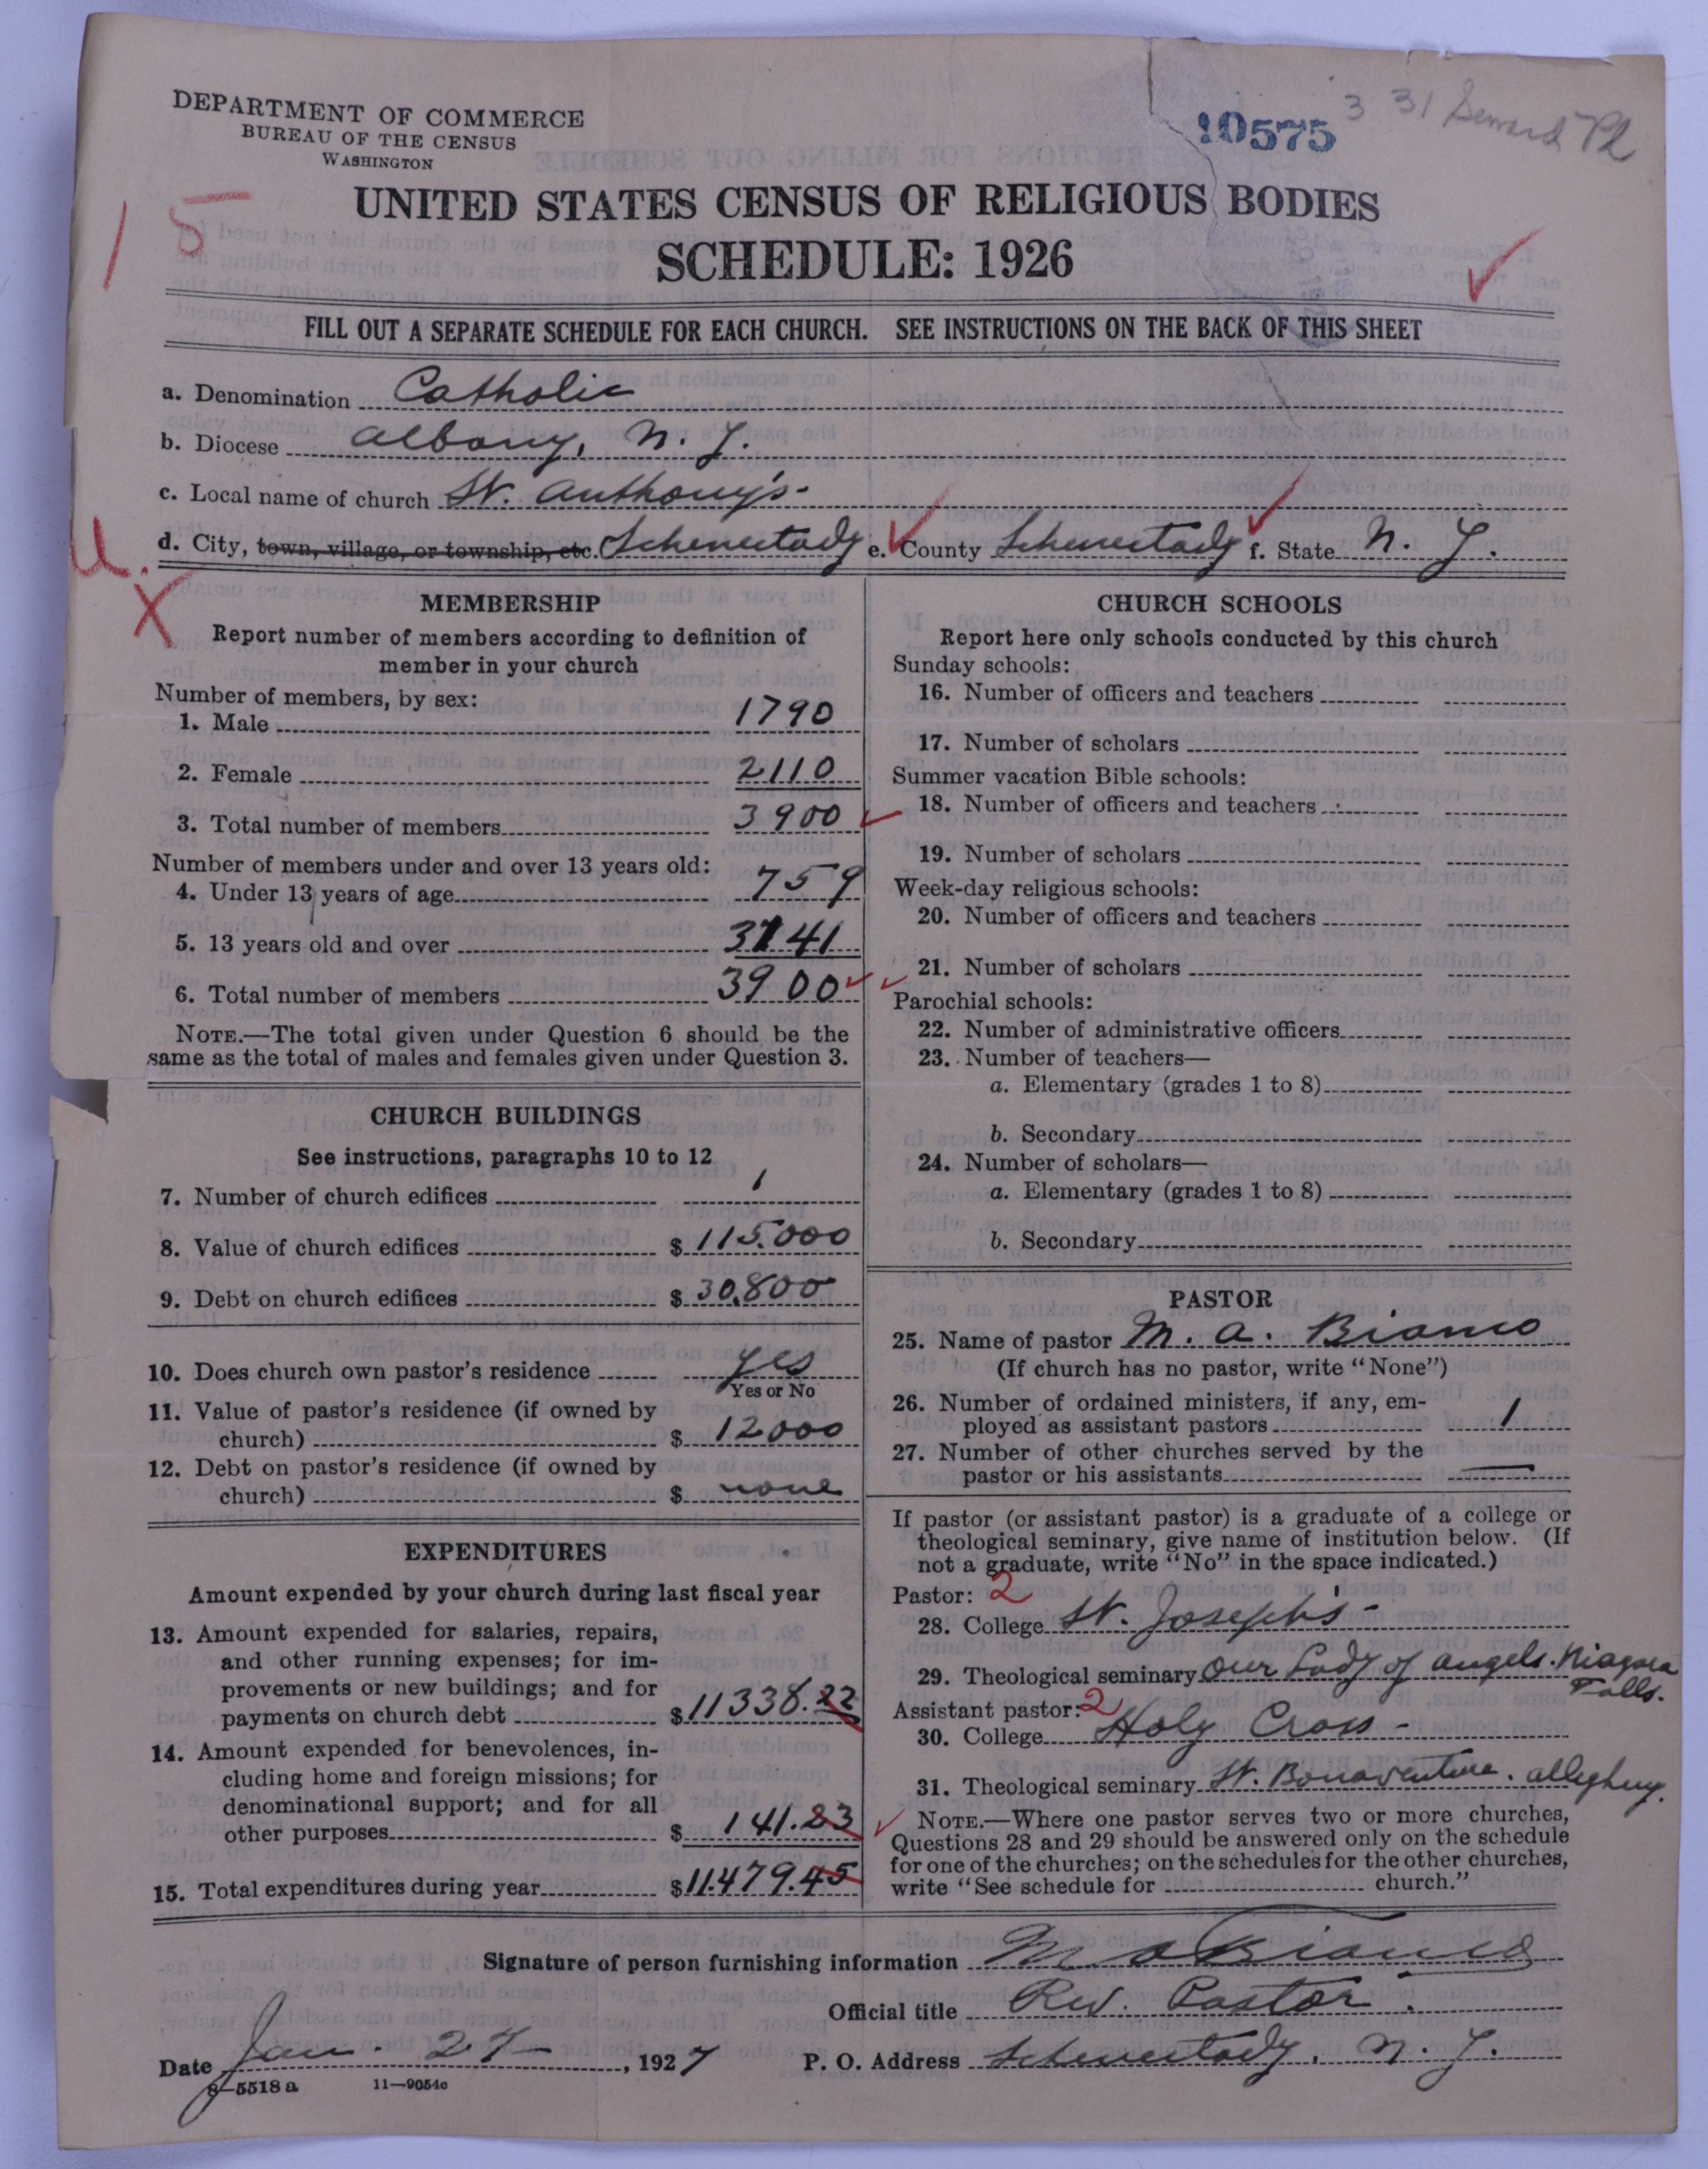 DEPARTMENT OF COMMERCE
BUREAU OF THE CENSUS
WASHINGTON
10575
3 31 Seward Pl
UNITED STATES CENSUS OF RELIGIOUS BODIES
SCHEDULE: 1926
15
FILL OUT A SEPARATE SCHEDULE FOR EACH CHURCH. SEE INSTRUCTIONS ON THE BACK OF THIS SHEET
a. Denomination Catholic
b. Diocese Albany, N. Y.
c. Local name of church St. Anthony's-
d. City, town, village, or township, etc. Schenectady e. County Schenectady f. State N. Y.
U.
X
MEMBERSHIP
Report number of members according to definition of
member in your church
Number of members, by sex:
1. Male 1790
2. Female 2110
3. Total number of members 3900
Number of members under and over 13 years old:
4. Under 13 years of age 759
5. 13 years old and over 3141
6. Total number of members 3900
NOTE.—The total given under Question 6 should be the
same as the total of males and females given under Question 3.
CHURCH BUILDINGS
See instructions, paragraphs 10 to 12
7. Number of church edifices 1
8. Value of church edifices $ 115.000
9. Debt on church edifices $ 30,800
10. Does church own pastor's residence yes
Yes or No
11. Value of pastor's residence (if owned by
church) $ 12000
12. Debt on pastor's residence (if owned by
church) $ none
EXPENDITURES
Amount expended by your church during last fiscal year
13. Amount expended for salaries, repairs,
and other running expenses; for im-
provements or new buildings; and for
payments on church debt $ 11338.22
14. Amount expended for benevolences, in-
cluding home and foreign missions; for
denominational support; and for all
other purposes $ 141.23
15. Total expenditures during year $ 11.479.45
CHURCH SCHOOLS
Report here only schools conducted by this church
Sunday schools:
16. Number of officers and teachers
17. Number of scholars
Summer vacation Bible schools:
18. Number of officers and teachers
19. Number of scholars
Week-day religious schools:
20. Number of officers and teachers
21. Number of scholars
Parochial schools:
22. Number of administrative officers
23. Number of teachers—
a. Elementary (grades 1 to 8)
b. Secondary
24. Number of scholars—
a. Elementary (grades 1 to 8)
b. Secondary
PASTOR
25. Name of pastor M. A. Bianco
(If church has no pastor, write "None")
26. Number of ordained ministers, if any, em-
ployed as assistant pastors 1
27. Number of other churches served by the
pastor or his assistants —
If pastor (or assistant pastor) is a graduate of a college or
theological seminary, give name of institution below. (If
not a graduate, write "No" in the space indicated.)
Pastor: 2
28. College St. Joseph's-
29. Theological seminary Our Lady of angels. Niagara
Falls.
Assistant pastor: 2
30. College Holy Cross -
31. Theological seminary St. Bonaventure. alleghny.
NOTE.—Where one pastor serves two or more churches,
Questions 28 and 29 should be answered only on the schedule
for one of the churches; on the schedules for the other churches,
write "See schedule for church."
Signature of person furnishing information M A Bianco
Official title Rev. Pastor.
Date Jan. 27, 1927 P. O. Address Schenectady, N. Y.
8—5518 a 11—9054c